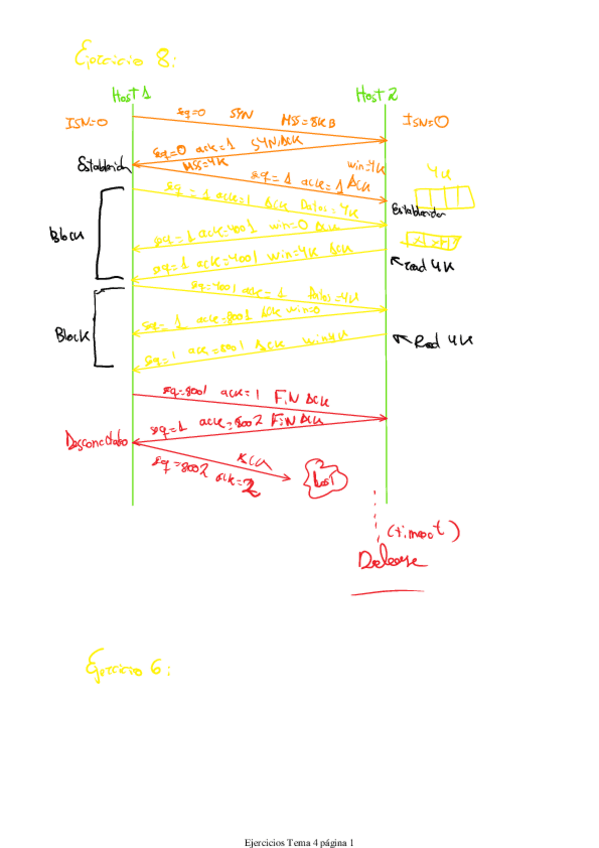 Ejercicio 8:
Host 1
Host 2
ISN=0
seq=0 SYN MSS=8KB
ISN=0
seq=0 ack=1 SYN,ACK
MSS=4K
win=4K
4K
seq=1 ack=1 ACK
seq=1 ack=1 ACK Datos=4K
Block
ack=4001 win=0 ACK
seq=1 ack=4001 win=4K ACK
read 4K
seq=4001 ack=1 Datos=4K
seq=1 ack=8001 ACK win=0
Block
Read 4K
seq=1 ack=8001 ACK win=4K
seq=8001 ack=1 FIN ACK
seq=1 ack=8002 FIN ACK
Desconectado
ACK
seq=8002
ack=2
lost
(timeout)
Release
Ejercicio 6:
Ejercicios Tema 4 página 1